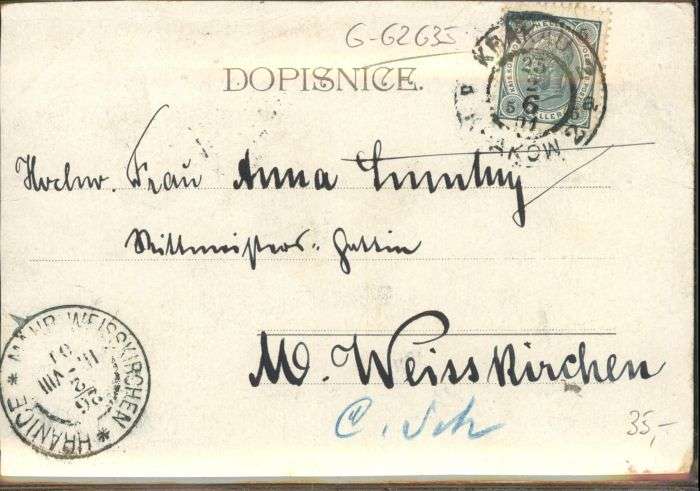 G-62635
DOPISNICE.
KRAKAU
25
6
01
KRAKÓW
5 HELLER 5
Hochw. Frau Anna
Rittmeisters-Gattin
M. Weisskirchen
C. Sch
35,-
MÄHR. WEISSKIRCHEN * HRANICE *
26
VIII
01